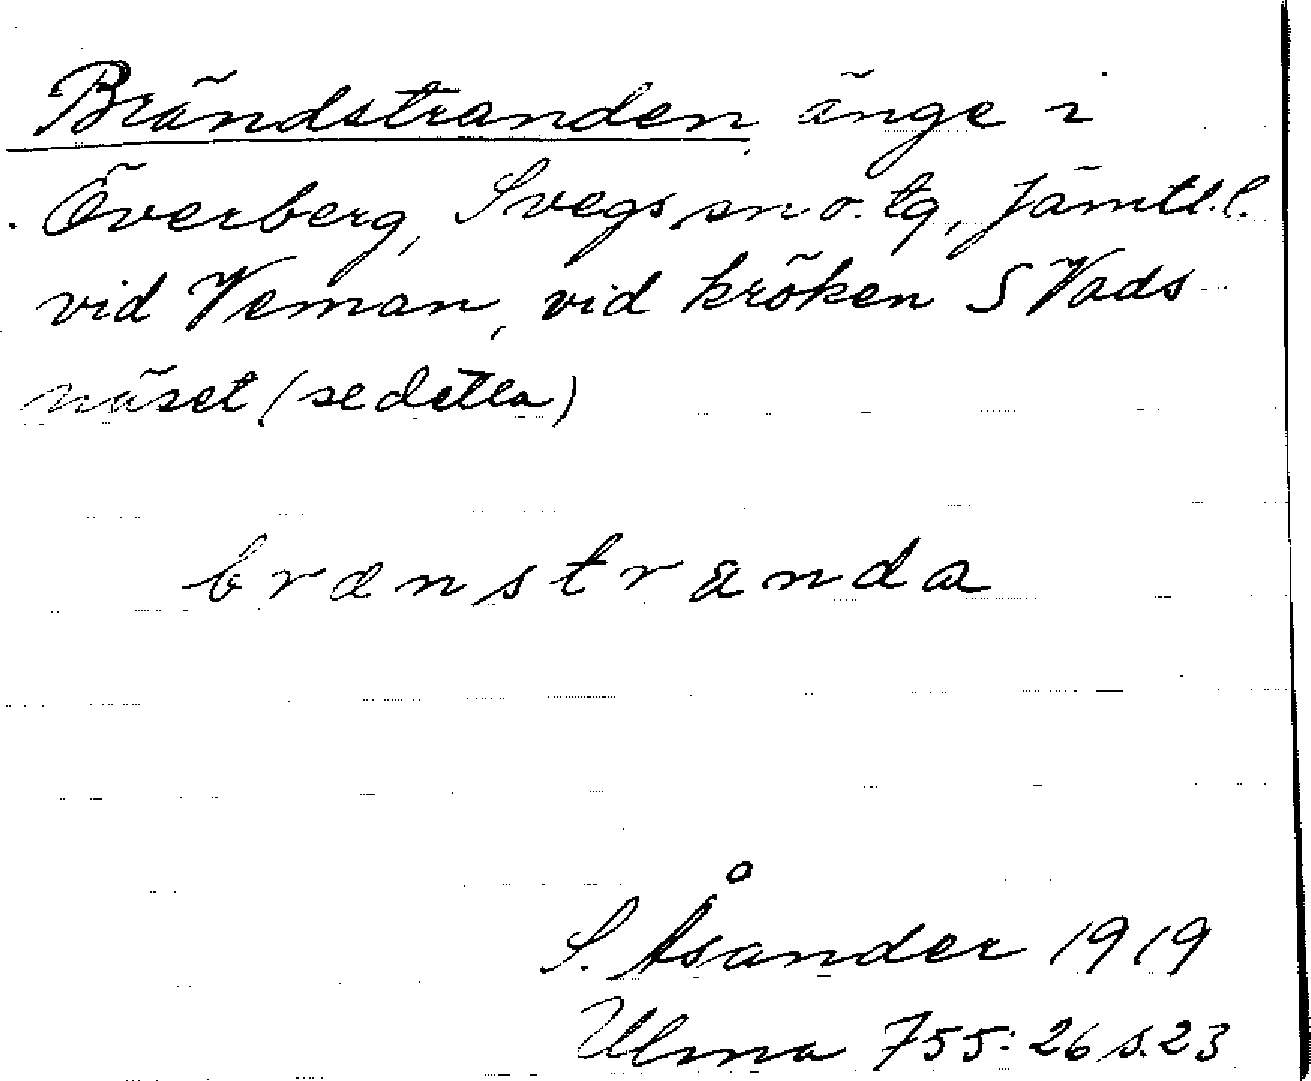 Brändstranden änge i
Överberg, Svegs sn o. tg, Jämtl.l.
vid Veman, vid kröken S Vads
näset (se detta)
brænstranda
S. Åsander 1919
Ulma 755:26 s.23